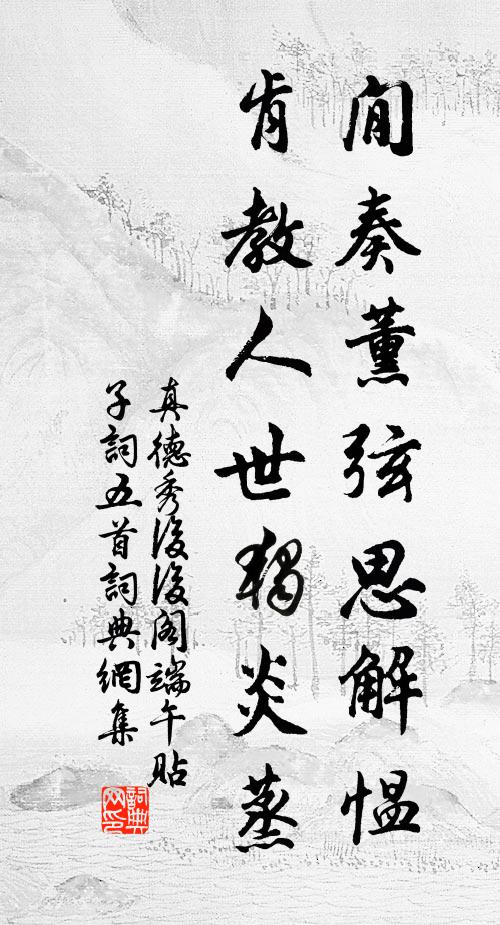 閒奏薰弦思解慍
肯教人世獨炎蒸
真德秀後後閣端午貼
子詞五首詞典網集
詞典网印